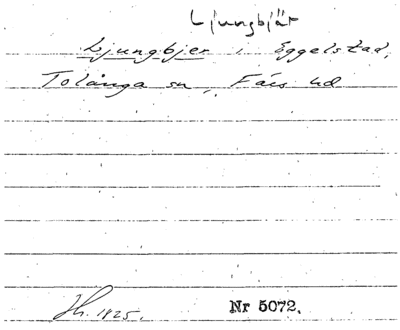 Ljungbjär
Ljungbjer i Eggelstad,
Tolånga sn, Färs hd
1925.
Nr 5072.